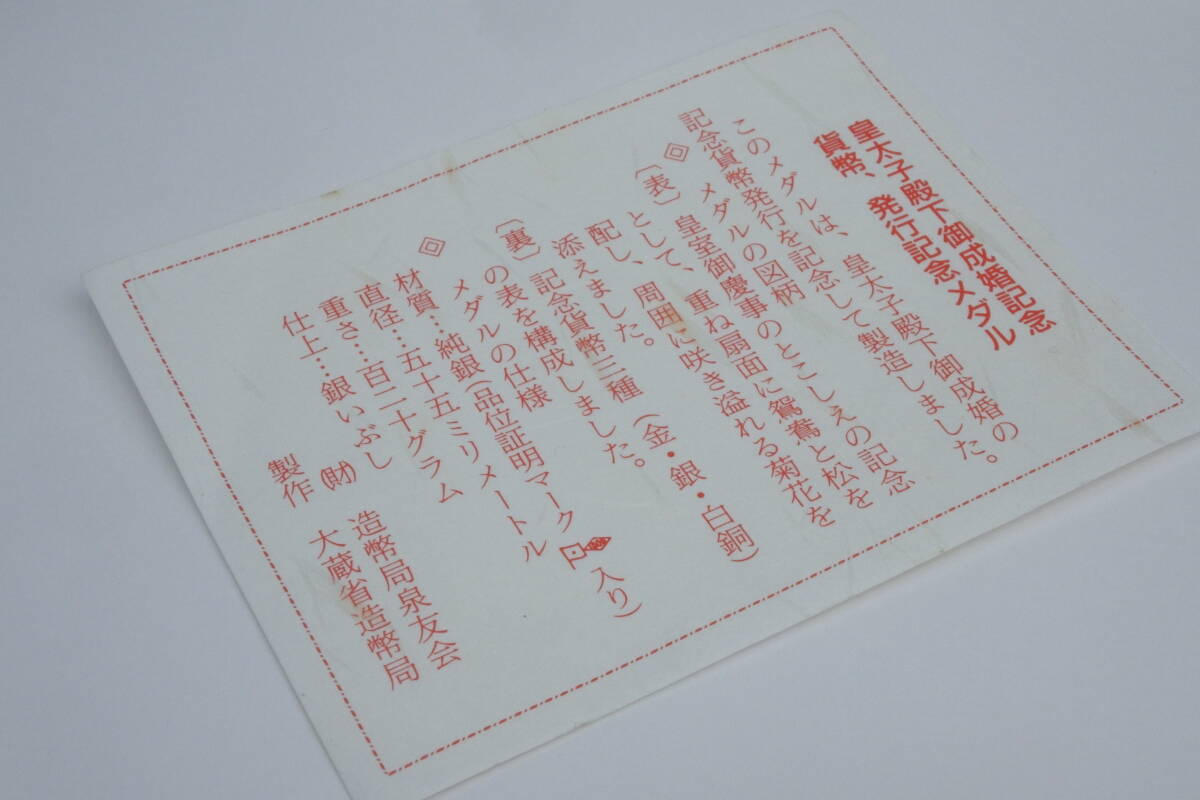 皇太子殿下御成婚記念
貨幣、発行記念メダル
このメダルは、皇太子殿下御成婚の
記念貨幣発行を記念して製造しました。
◈ メダルの図柄
〔表〕皇室御慶事のとこしえの記念
として、重ね扇面に鴛鴦と松を
配し、周囲に咲き溢れる菊花を
添えました。
〔裏〕記念貨幣三種（金・銀・白銅）
の表を構成しました。
◈ メダルの仕様
材質…純銀（品位証明マーク入り）
直径…五十五ミリメートル
重さ…百二十グラム
仕上…銀いぶし
㈶ 造幣局泉友会
製作 大蔵省造幣局